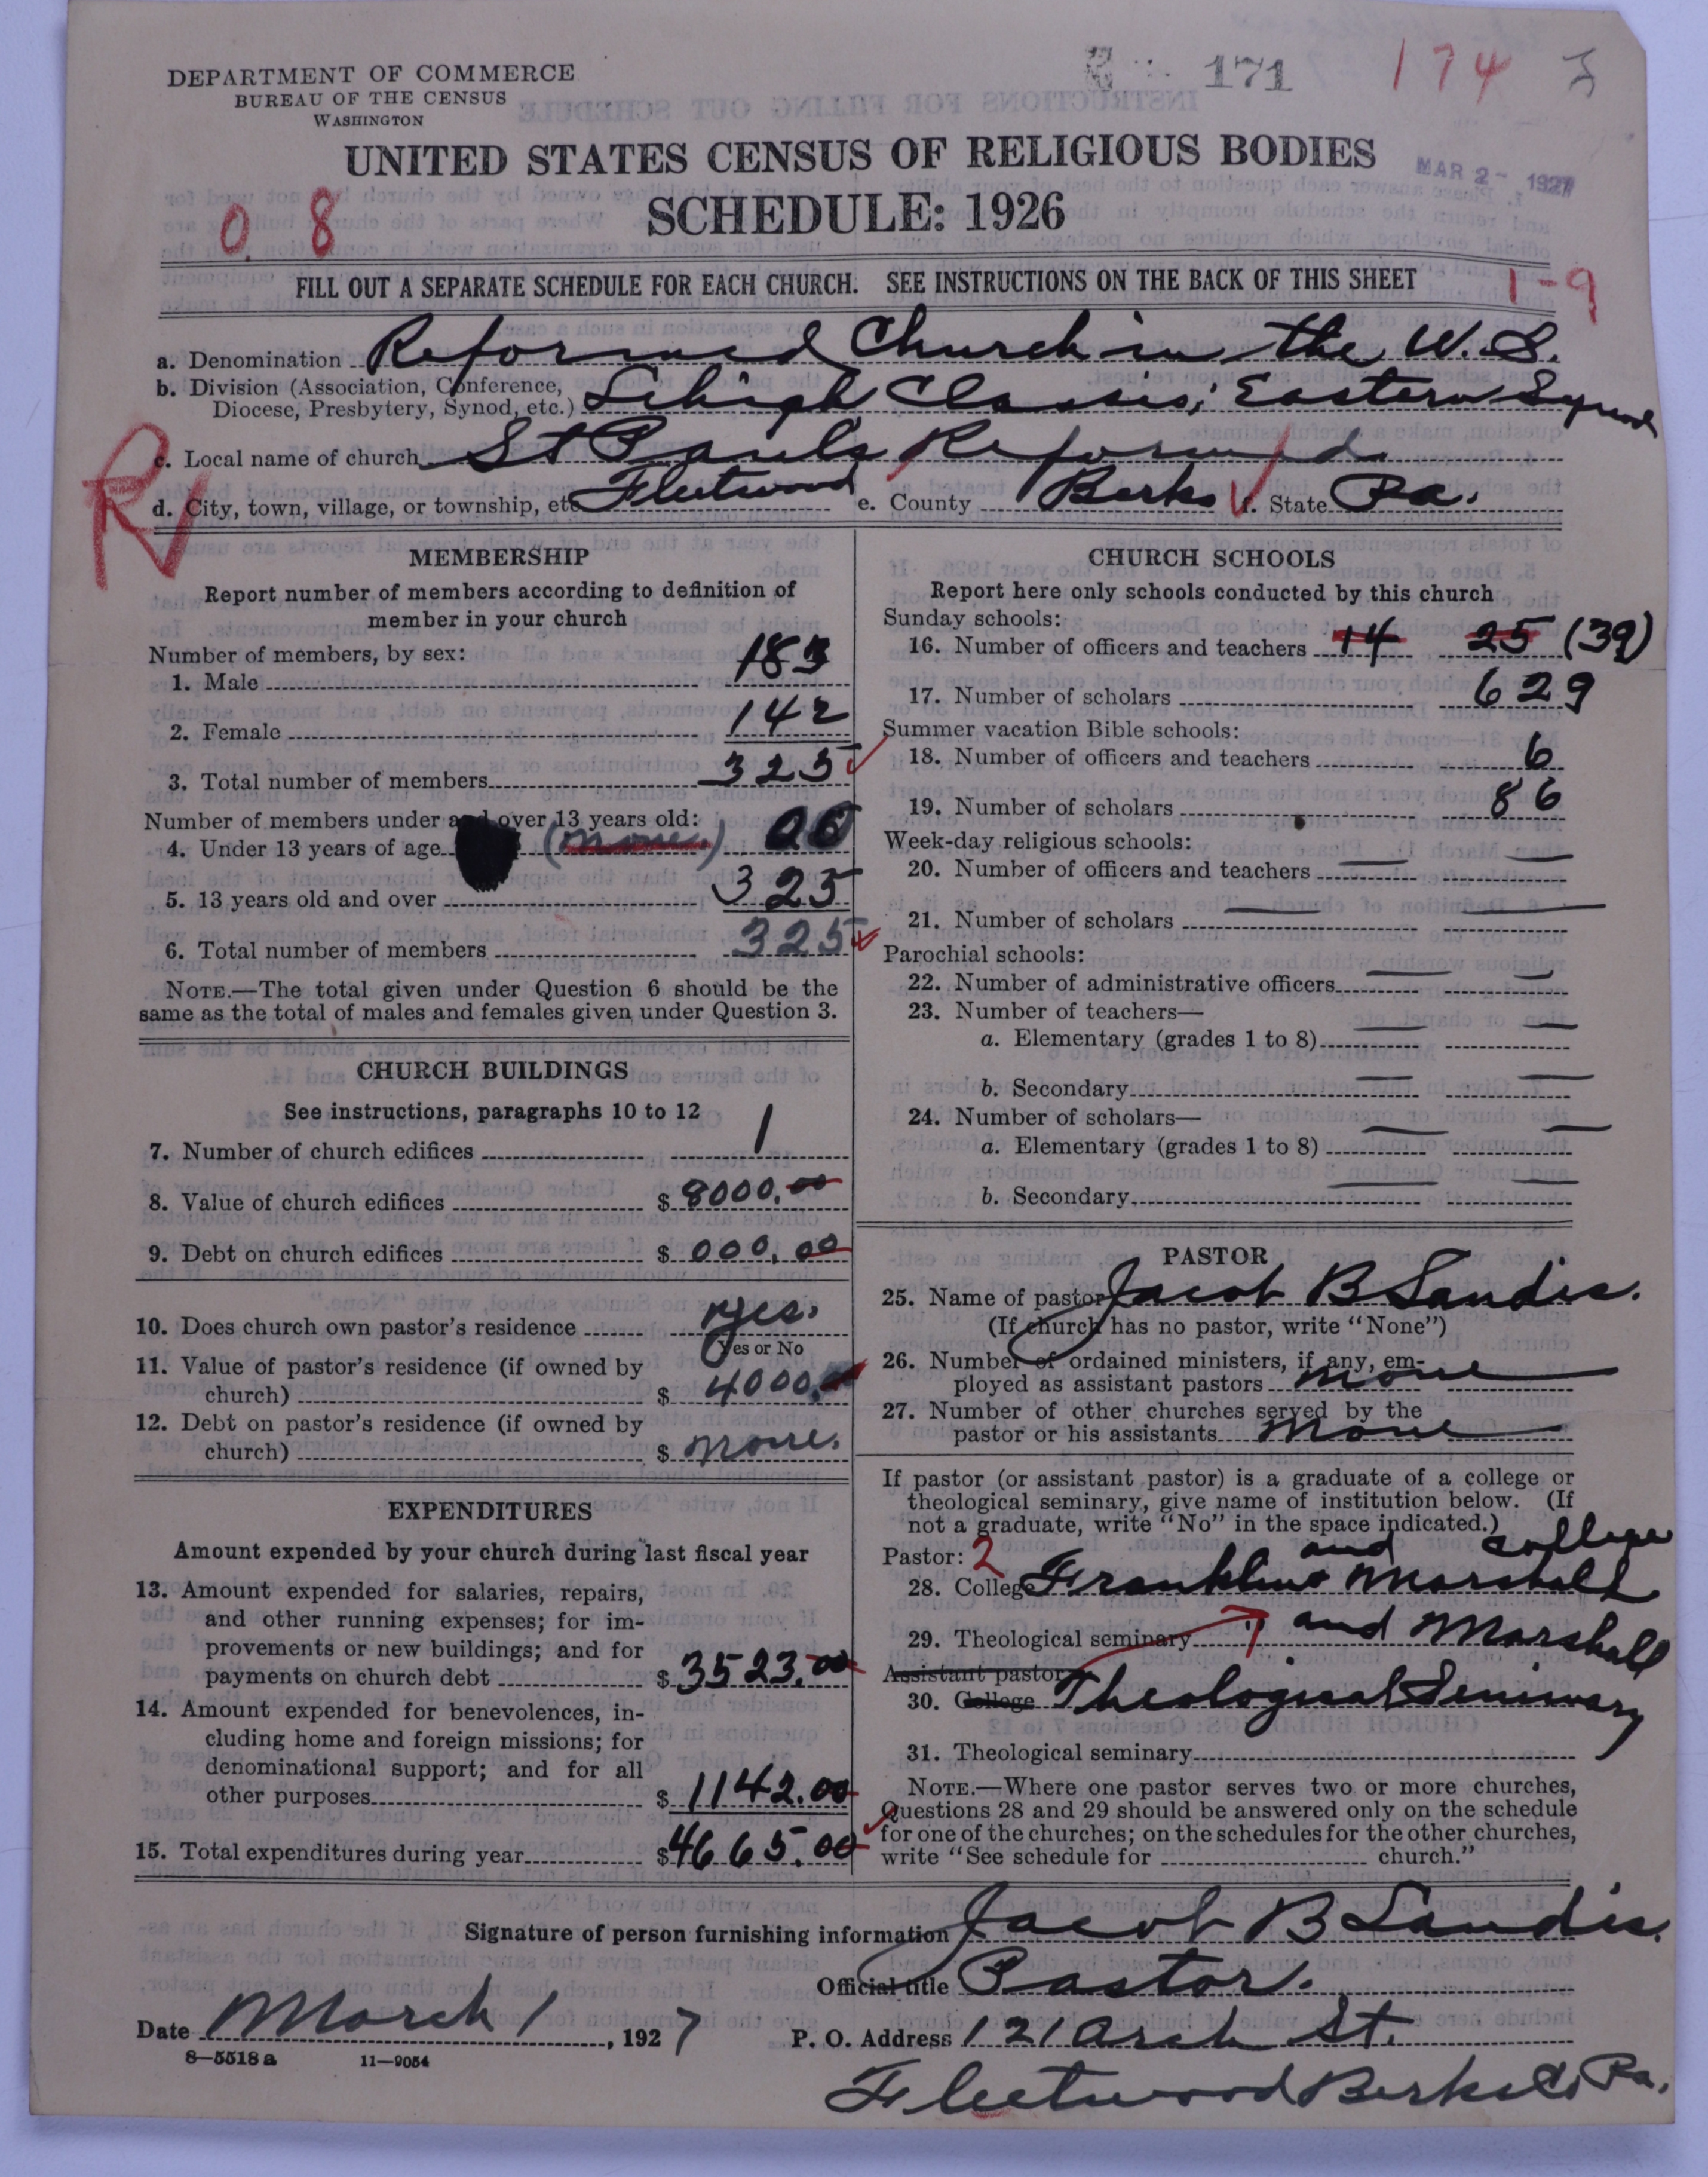 DEPARTMENT OF COMMERCE
BUREAU OF THE CENSUS
WASHINGTON
171
174
UNITED STATES CENSUS OF RELIGIOUS BODIES
MAR 2- 1927
SCHEDULE: 1926
0. 8
FILL OUT A SEPARATE SCHEDULE FOR EACH CHURCH. SEE INSTRUCTIONS ON THE BACK OF THIS SHEET
1-9
a. Denomination Reformed Church in the U.S.
b. Division (Association, Conference, Diocese, Presbytery, Synod, etc.) Lehigh Classis; Eastern Synod
c. Local name of church St Pauls Reformed
d. City, town, village, or township, etc Fleetwood e. County Berks f. State Pa.
R
MEMBERSHIP
Report number of members according to definition of
member in your church
Number of members, by sex:
1. Male 183
2. Female 142
3. Total number of members 325
Number of members under and over 13 years old:
4. Under 13 years of age (none.) 00
5. 13 years old and over 325
6. Total number of members 325
NOTE.—The total given under Question 6 should be the
same as the total of males and females given under Question 3.
CHURCH BUILDINGS
See instructions, paragraphs 10 to 12
7. Number of church edifices 1
8. Value of church edifices $ 8000.00
9. Debt on church edifices $ 000.00
10. Does church own pastor's residence yes.
Yes or No
11. Value of pastor's residence (if owned by
church) $ 4000.00
12. Debt on pastor's residence (if owned by
church) $ none.
EXPENDITURES
Amount expended by your church during last fiscal year
13. Amount expended for salaries, repairs,
and other running expenses; for im-
provements or new buildings; and for
payments on church debt $ 3523.00
14. Amount expended for benevolences, in-
cluding home and foreign missions; for
denominational support; and for all
other purposes $ 1142.00
15. Total expenditures during year $ 4665.00
CHURCH SCHOOLS
Report here only schools conducted by this church
Sunday schools:
16. Number of officers and teachers 14 25 (39)
17. Number of scholars 629
Summer vacation Bible schools:
18. Number of officers and teachers 6
19. Number of scholars 86
Week-day religious schools:
20. Number of officers and teachers
21. Number of scholars
Parochial schools:
22. Number of administrative officers
23. Number of teachers—
a. Elementary (grades 1 to 8)
b. Secondary
24. Number of scholars—
a. Elementary (grades 1 to 8)
b. Secondary
PASTOR
25. Name of pastor Jacob B Landis.
(If church has no pastor, write "None")
26. Number of ordained ministers, if any, em-
ployed as assistant pastors none
27. Number of other churches served by the
pastor or his assistants none
If pastor (or assistant pastor) is a graduate of a college or
theological seminary, give name of institution below. (If
not a graduate, write "No" in the space indicated.)
Pastor: 2 and college
28. College Franklin Marshall
29. Theological seminary " and Marshall
Assistant pastor
30. College Theological Seminary
31. Theological seminary
NOTE.—Where one pastor serves two or more churches,
Questions 28 and 29 should be answered only on the schedule
for one of the churches; on the schedules for the other churches,
write "See schedule for church."
Signature of person furnishing information Jacob B Landis.
Official title Pastor.
Date March 1, 1927 P. O. Address 121 Arch St.
8-5518a 11-9054
Fleetwood Berks Co Pa.